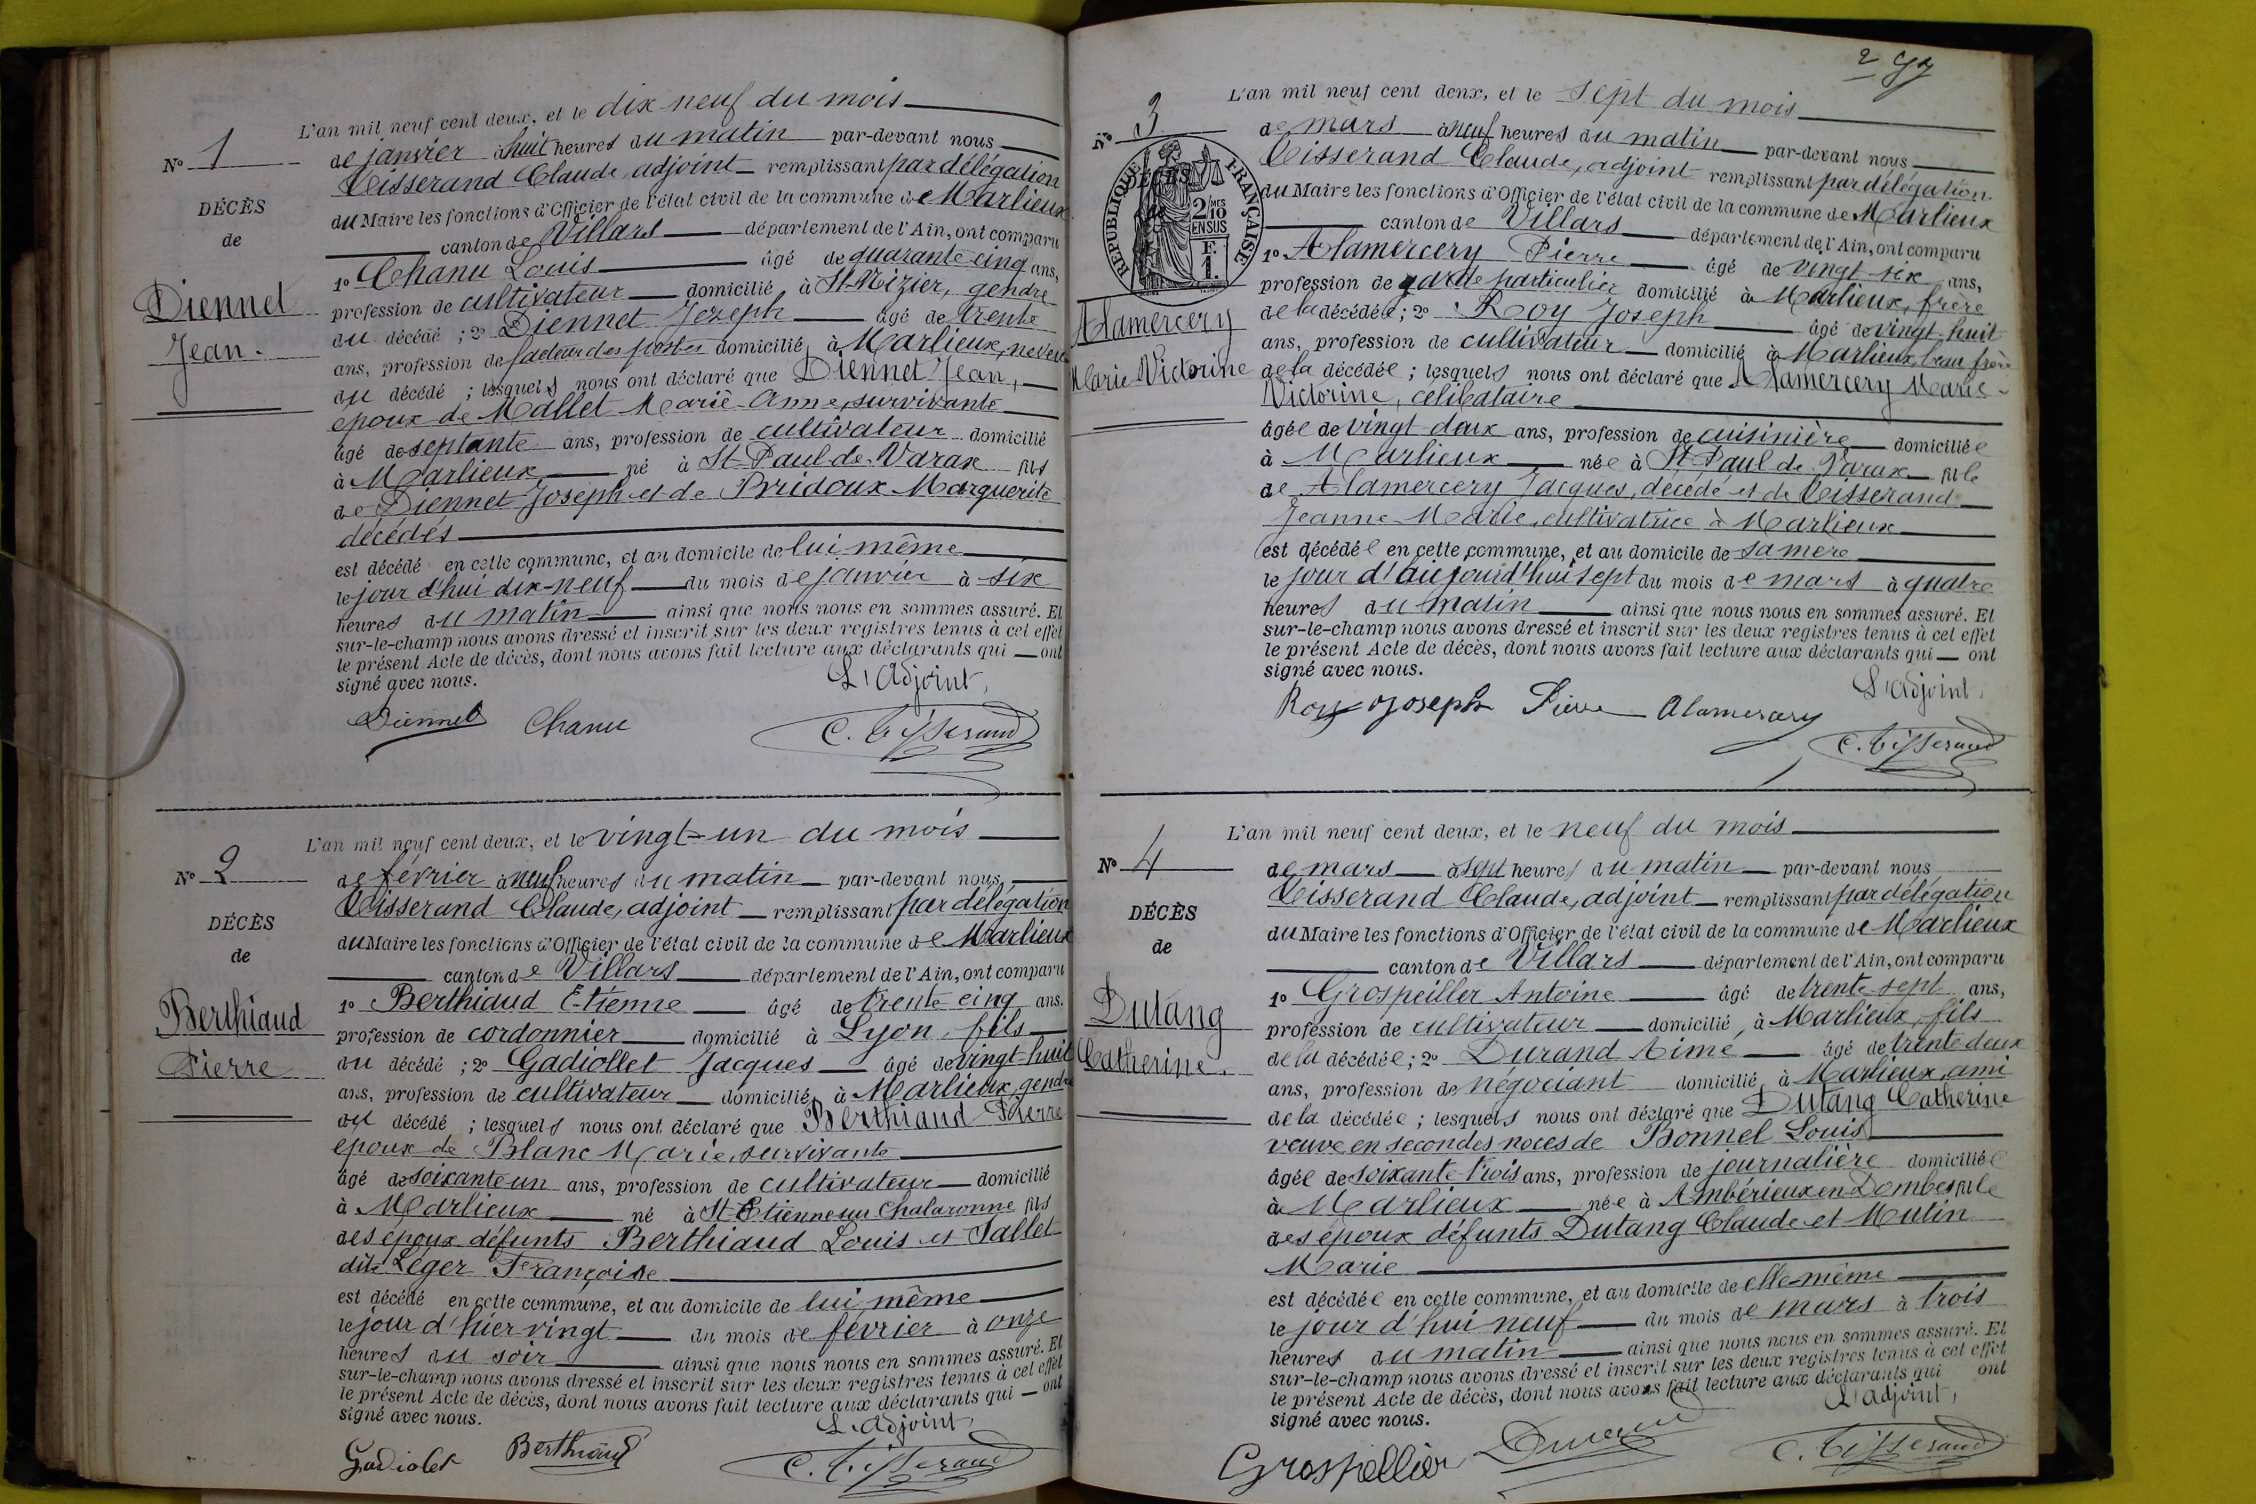 L'an mil neuf cent deux, et le dix-neuf du mois
de janvier à huit heures du matin par-devant nous
Tisserand Claude, adjoint remplissant par délégation
du Maire les fonctions d'Officier de l'état civil de la commune de Marlieux
canton de Villars département de l'Ain, ont comparu
1º Chanu Louis âgé de quarante cinq ans,
profession de cultivateur domicilié à St Nizier, gendre
du décédé ; 2º Diennet Joseph âgé de trente
ans, profession de facteur des postes domicilié à Marlieux, neveu
du décédé ; lesquels nous ont déclaré que Diennet Jean,
époux de Mallet Marie-Anne, survivante
âgé de septante ans, profession de cultivateur domicilié
à Marlieux né à St Paul-de-Varax fils
de Diennet Joseph et de Pridoux Marguerite
décédés
est décédé en cette commune, et au domicile de lui même
le jour d'hui dix-neuf du mois de janvier à six
heures du matin ainsi que nous nous en sommes assuré. Et
sur-le-champ nous avons dressé et inscrit sur les deux registres tenus à cet effet
le présent Acte de décès, dont nous avons fait lecture aux déclarants qui ont
signé avec nous.
L'adjoint,
Diennet Chanu C. Tisserand
Nº 1
DÉCÈS
de
Diennet
Jean.
L'an mil neuf cent deux, et le vingt-un du mois
de février à neuf heures du matin par-devant nous,
Tisserand Claude, adjoint remplissant par délégation
du Maire les fonctions d'Officier de l'état civil de la commune de Marlieux
canton de Villars département de l'Ain, ont comparu
1º Berthiaud Etienne âgé de trente cinq ans.
profession de cordonnier domicilié à Lyon, fils
du décédé ; 2º Gadiollet Jacques âgé de vingt-huit
ans, profession de cultivateur domicilié à Marlieux, gendre
du décédé ; lesquels nous ont déclaré que Berthiaud Pierre
époux de Blanc Marie, survivante
âgé de soixante un ans, profession de cultivateur domicilié
à Marlieux né à St Etienne sur Chalaronne fils
des époux défunts Berthiaud Louis et Tallet
dite Léger Françoise
est décédé en cette commune, et au domicile de lui même
le jour d'hier vingt du mois de février à onze
heures du soir ainsi que nous nous en sommes assuré. Et
sur-le-champ nous avons dressé et inscrit sur les deux registres tenus à cet effet
le présent Acte de décès, dont nous avons fait lecture aux déclarants qui ont
signé avec nous.
L'adjoint,
Gadiolet Berthiaud C. Tisserand
Nº 2
DÉCÈS
de
Berthiaud
Pierre
2
L'an mil neuf cent deux, et le sept du mois
de mars à neuf heures du matin par-devant nous
Tisserand Claude, adjoint remplissant par délégation
du Maire les fonctions d'Officier de l'état civil de la commune de Marlieux
canton de Villars département de l'Ain, ont comparu
1º Alamercery Pierre âgé de vingt-six ans,
profession de garde particulier domicilié à Marlieux, frère
de la décédée ; 2º Roy Joseph âgé de vingt-huit
ans, profession de cultivateur domicilié à Marlieux, beau frère
de la décédée ; lesquels nous ont déclaré que Alamercery Marie-
Victorine, célibataire
âgée de vingt-deux ans, profession de cuisinière domiciliée
à Marlieux née à St Paul de Varax fille
de Alamercery Jacques, décédé et de Tisserand
Jeanne-Marie, cultivatrice à Marlieux
est décédée en cette commune, et au domicile de sa mère
le jour d'aujourd'hui sept du mois de mars à quatre
heures du matin ainsi que nous nous en sommes assuré. Et
sur-le-champ nous avons dressé et inscrit sur les deux registres tenus à cet effet
le présent Acte de décès, dont nous avons fait lecture aux déclarants qui ont
signé avec nous.
L'adjoint,
Roy Joseph Pierre Alamercery
C. Tisserand
Nº 3
DÉCÈS
RÉPUBLIQUE FRANÇAISE
2/10MES
EN SUS
F.
1.
Alamercery
Marie Victorine
L'an mil neuf cent deux, et le neuf du mois
de mars à sept heures du matin par-devant nous
Tisserand Claude, adjoint remplissant par délégation
du Maire les fonctions d'Officier de l'état civil de la commune de Marlieux
canton de Villars département de l'Ain, ont comparu
1º Grospeiller Antoine âgé de trente-sept ans,
profession de cultivateur domicilié à Marlieux, fils
de la décédée ; 2º Durand Aimé âgé de trente deux
ans, profession de négociant domicilié à Marlieux, ami
de la décédée ; lesquels nous ont déclaré que Dutang Catherine
veuve en secondes noces de Bonnel Louis
âgée de soixante-trois ans, profession de journalière domiciliée
à Marlieux née à Ambérieux en Dombes fille
des époux défunts Dutang Claude et Mutin
Marie
est décédée en cette commune, et au domicile de elle-même
le jour d'hui neuf du mois de mars à trois
heures du matin ainsi que nous nous en sommes assuré. Et
sur-le-champ nous avons dressé et inscrit sur les deux registres tenus à cet effet
le présent Acte de décès, dont nous avons fait lecture aux déclarants qui ont
signé avec nous.
L'adjoint,
Grospellier Durand C. Tisserand
Nº 4
DÉCÈS
de
Dutang
Catherine.